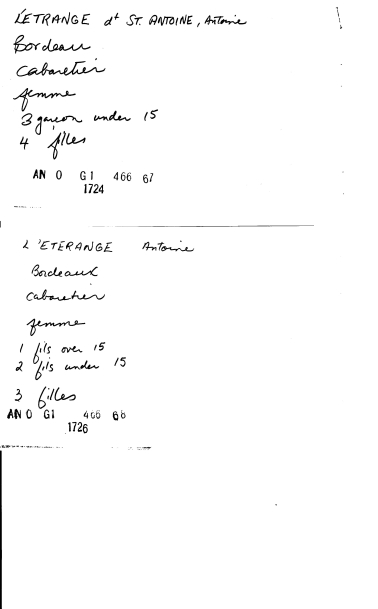 L'ETRANGE dt ST. ANTOINE, Antoine
Bordeau
Cabaretier
femme
3 garcon under 15
4 filles
AN O G1 466 67
1724
L'ETERANGE Antoine
Bordeaux
Cabaretier
femme
1 fils over 15
2 fils under 15
3 filles
AN O G1 466 68
1726